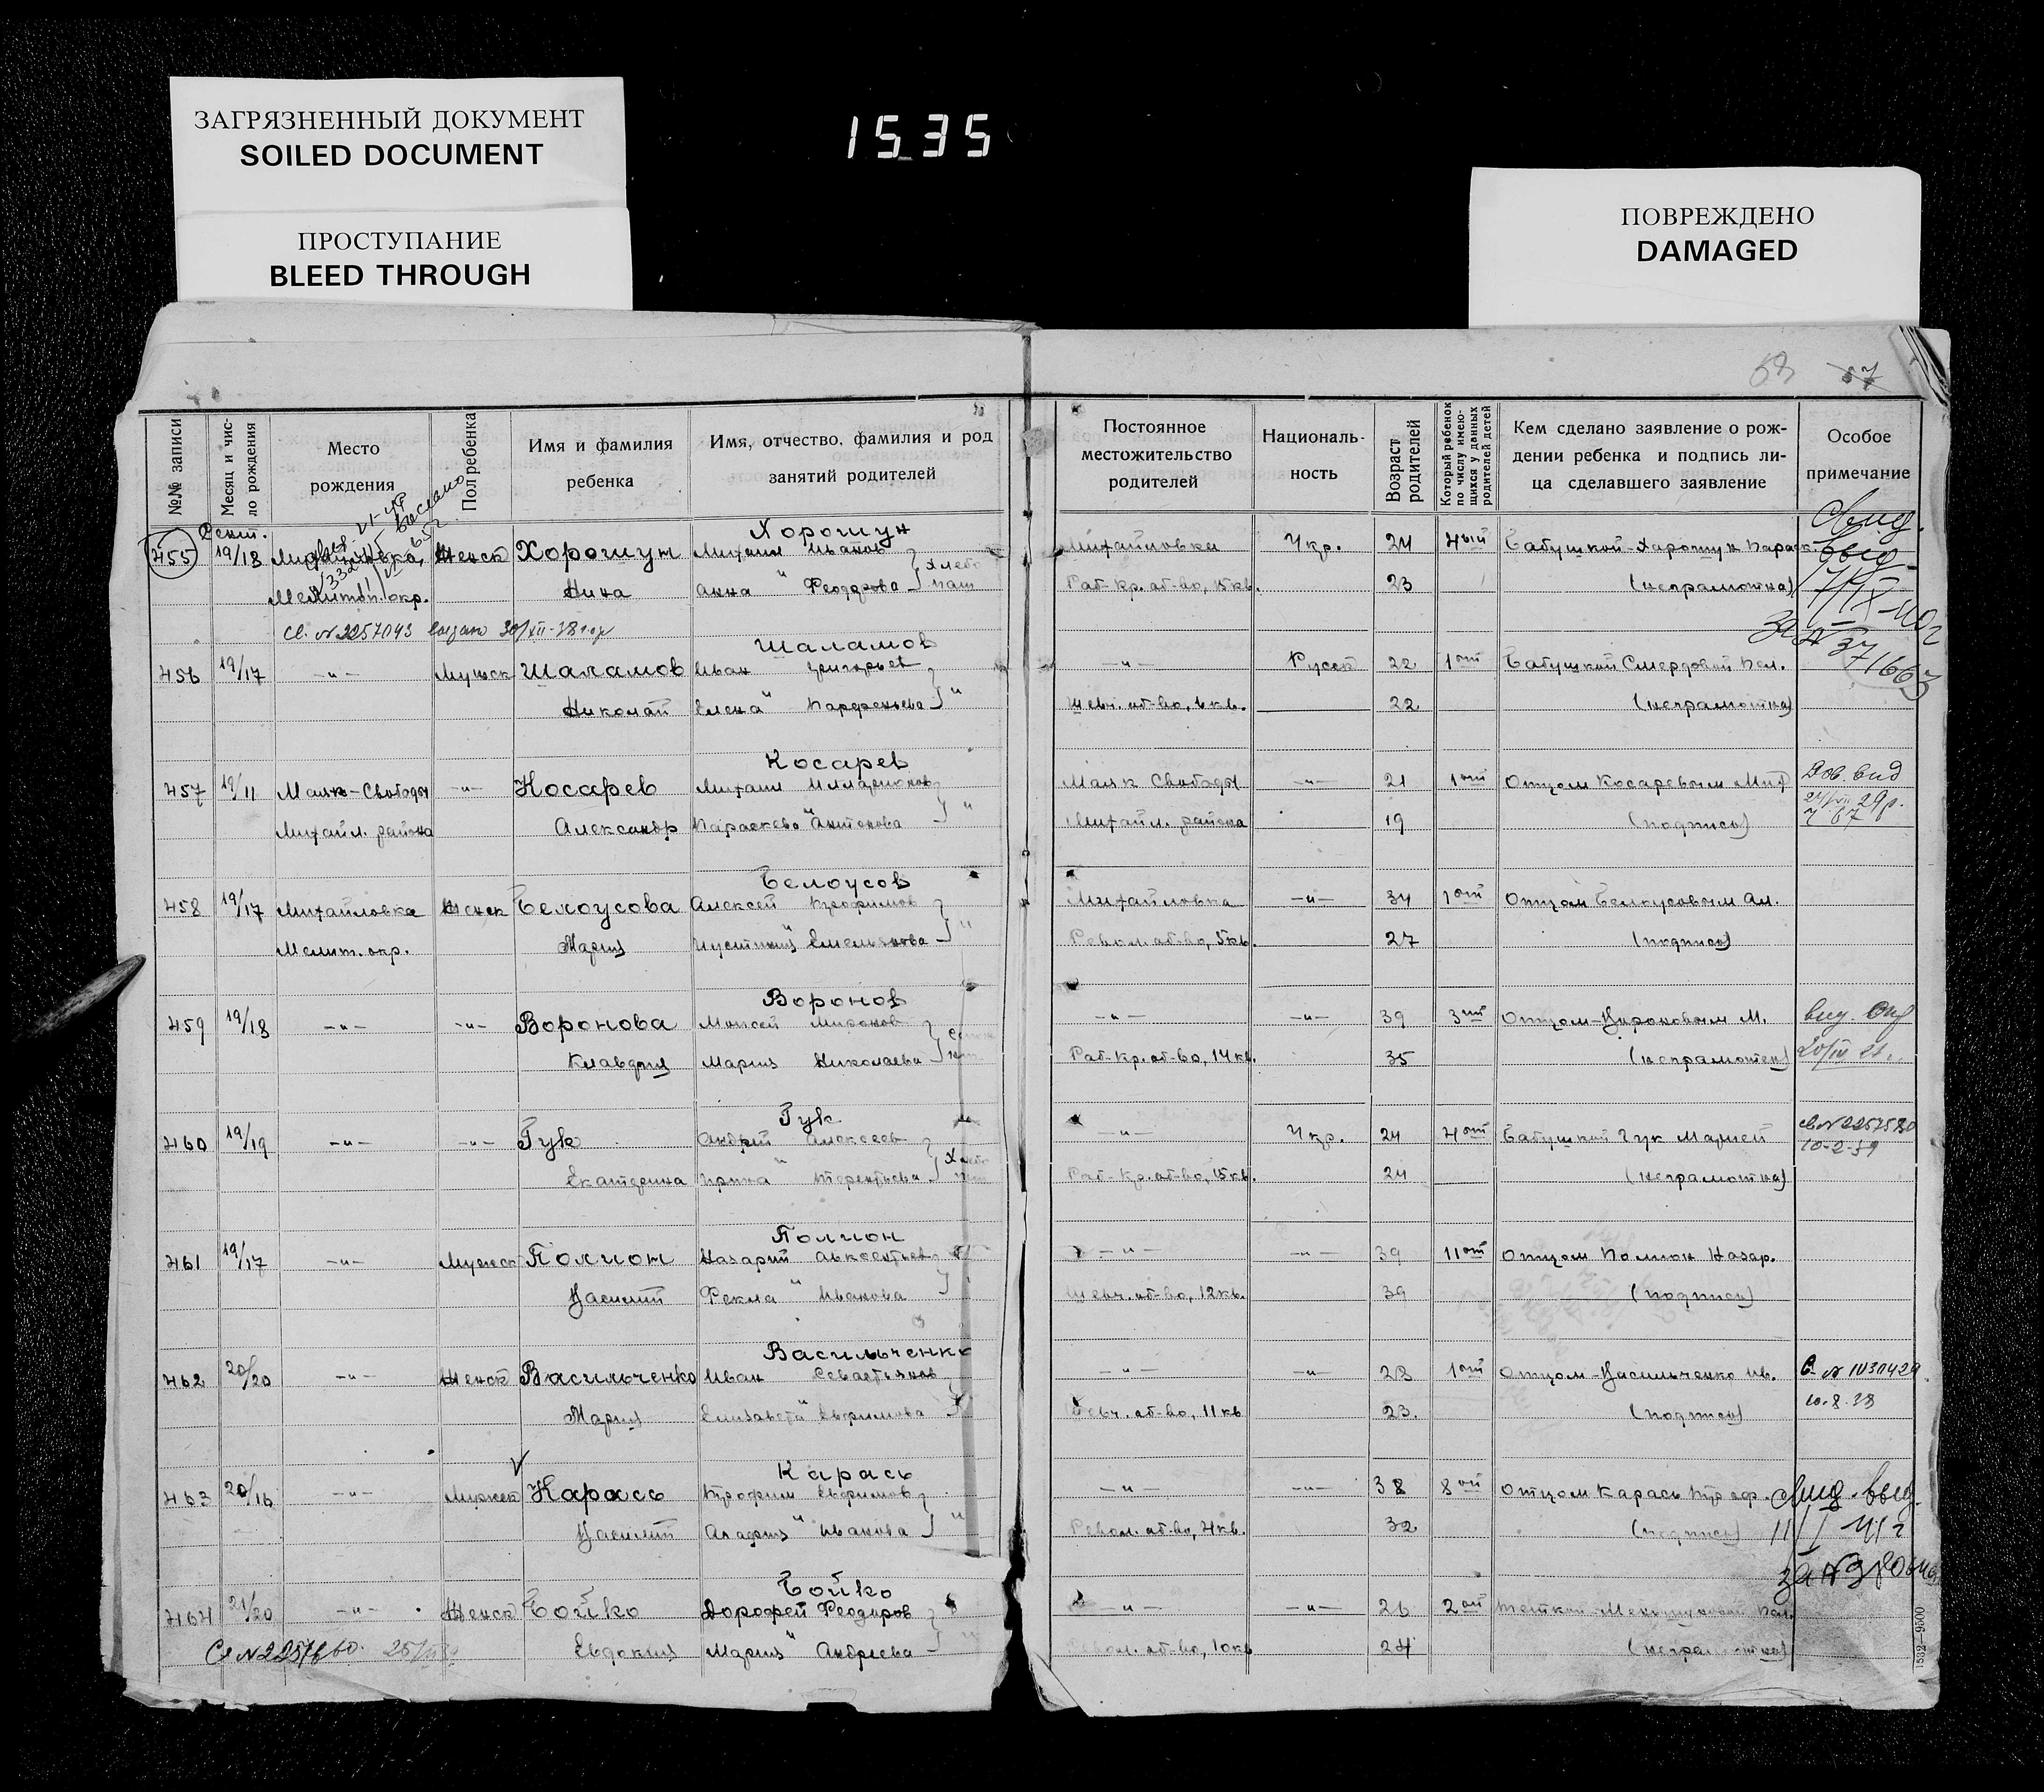 ЗАГРЯЗНЕННЫЙ ДОКУМЕНТ
SOILED DOCUMENT
ПРОСТУПАНИЕ
BLEED THROUGH
15.35
ПОВРЕЖДЕНО
DAMAGED
58 57
№№ записи
Месяц и число рождения
Место рождения
Пол ребенка
Имя и фамилия ребенка
Имя, отчество, фамилия и род занятий родителей
Постоянное местожительство родителей
Националь-ность
Возраст родителей
Который ребенок по числу имею-щихся у данных родителей детей
Кем сделано заявление о рож-дении ребенка и подпись ли-ца сделавшего заявление
Особое примечание
Сент. Хорошун Свид.
455 19/18 Михайловка, Женск Хорошун Михаил Иванов Михайловка Укр. 24 4ый Бабушкой Хорошун Параск. выд.
Мелитоп. окр. Нина Анна " Феодорова Раб-Кр. об-во, 15 кв. 23 (неграмотна) 17/IX-40 г
Св. № 2257043 выдано 30/XII-38 году за № 371663
Шаламов
456 19/17 -"- Мужск Шаламов Иван Григорьев -"- Русск 22 1ый Бабушкой Смердовой Пел.
Николай Елена " Парфеньева " Шевч. об-во, 6 кв. 22 (неграмотна)
Косарев
457 19/11 Маяк-Свободы -"- Косарев Михаил Илларионов Маяк Свободы -"- 21 1ый Отцом Косаревым Мих
Михайл. района Александр Параскева " Антонова " Михайл. района 19 (подпись)
Белоусов
458 19/17 Михайловка Женск Белоусова Алексей Трофимов Михайловка -"- 34 1ый Отцом Белоусовым Ал.
Мелит. окр. Мария Иустиния Емельянова "Револ. об-во, 5 кв. 27 (подпись)
Воронов
459 19/18 -"- -"- Воронова Моисей Миронов -"- -"- 39 3ий Отцом-Вороновым М.
Клавдия Мария Николаева Раб-Кр. об-во, 14 кв. 35 (неграмотен)
Гук
460 19/19 -"- -"- Гук Андрей Алексеев -"- Укр. 24 4ый Бабушкой Гук Марией св № 2257580
Екатерина Ирина " Терентьева Раб-Кр. об-во, 15 кв. 24 (неграмотна) 10-2-39
Полион
461 19/17 -"- Мужск Полион Назарий Авксентьев -"- -"- 39 11ый Отцом Полион Назар.
Василий Фекла " Иванова Шевч. об-во, 12 кв. 39 (подпись)
Васильченко
462 20/20 -"- Женск Васильченко Иван Севастьянов -"- -"- 23 1ый Отцом-Васильченко Ив.
Мария Елизавета " Евфимова Шевч. об-во, 11 кв 23. (подпись)
Карась
463 20/16 -"- Мужск Карась Трофим Евфимов -"- -"- 38 8ой Отцом Карась Троф. Свид. выд.
Василий Агафия " Иванова "Револ. об-во, 4 кв. 32 (подпись) 11/I 41 г
Бойко
464 21/20 -"- Женск Бойко Дорофей Феодоров -"- -"- 26 2ой Теткой
Евдокия Мария " АндрееваРевол. об-во, 10 кв 24 (неграмотна)
1532—9500